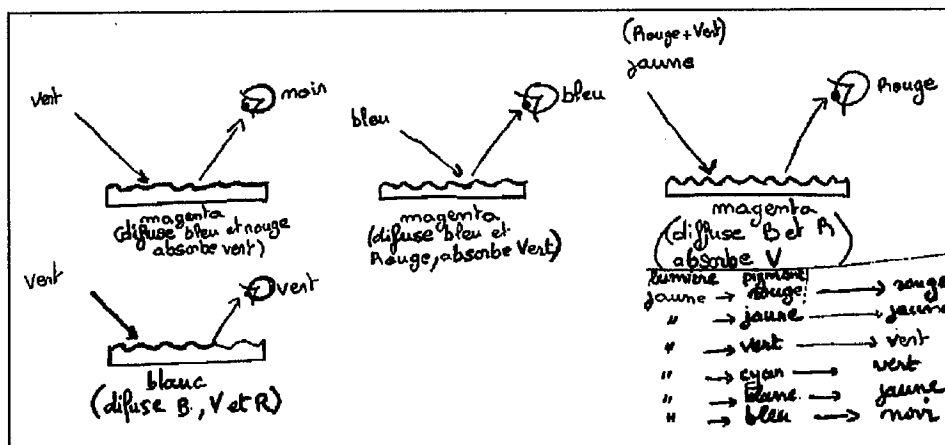 vert
noir
magenta
(difuse bleu et rouge
absorbe vert)
bleu
bleu
magenta
(difuse bleu et
Rouge, absorbe Vert)
(Rouge + Vert)
jaune
Rouge
magenta
(diffuse B et R)
absorbe V
Vert
vert
blanc
(difuse B, V et R)
lumière pigment
jaune → rouge → rouge
" → jaune → jaune
" → vert → vert
" → cyan → vert
" → blanc → jaune
" → bleu → noir